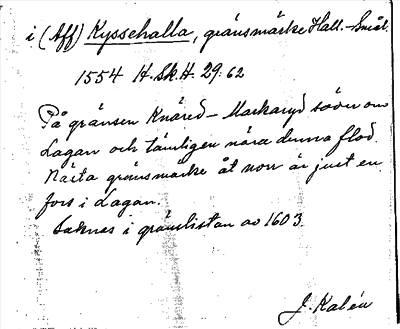 i (Aff) Kyssehalla, gränsmärke Hall.-Smål.
1554 H.Sk.H. 29:62
På gränsen Knäred - Markaryd söder om
Lagan och tämligen nära denna flod.
Nästa gränsmärke åt norr är just en
fors i Lagan.
Saknes i gränslistan av 1603.
J. Kalén